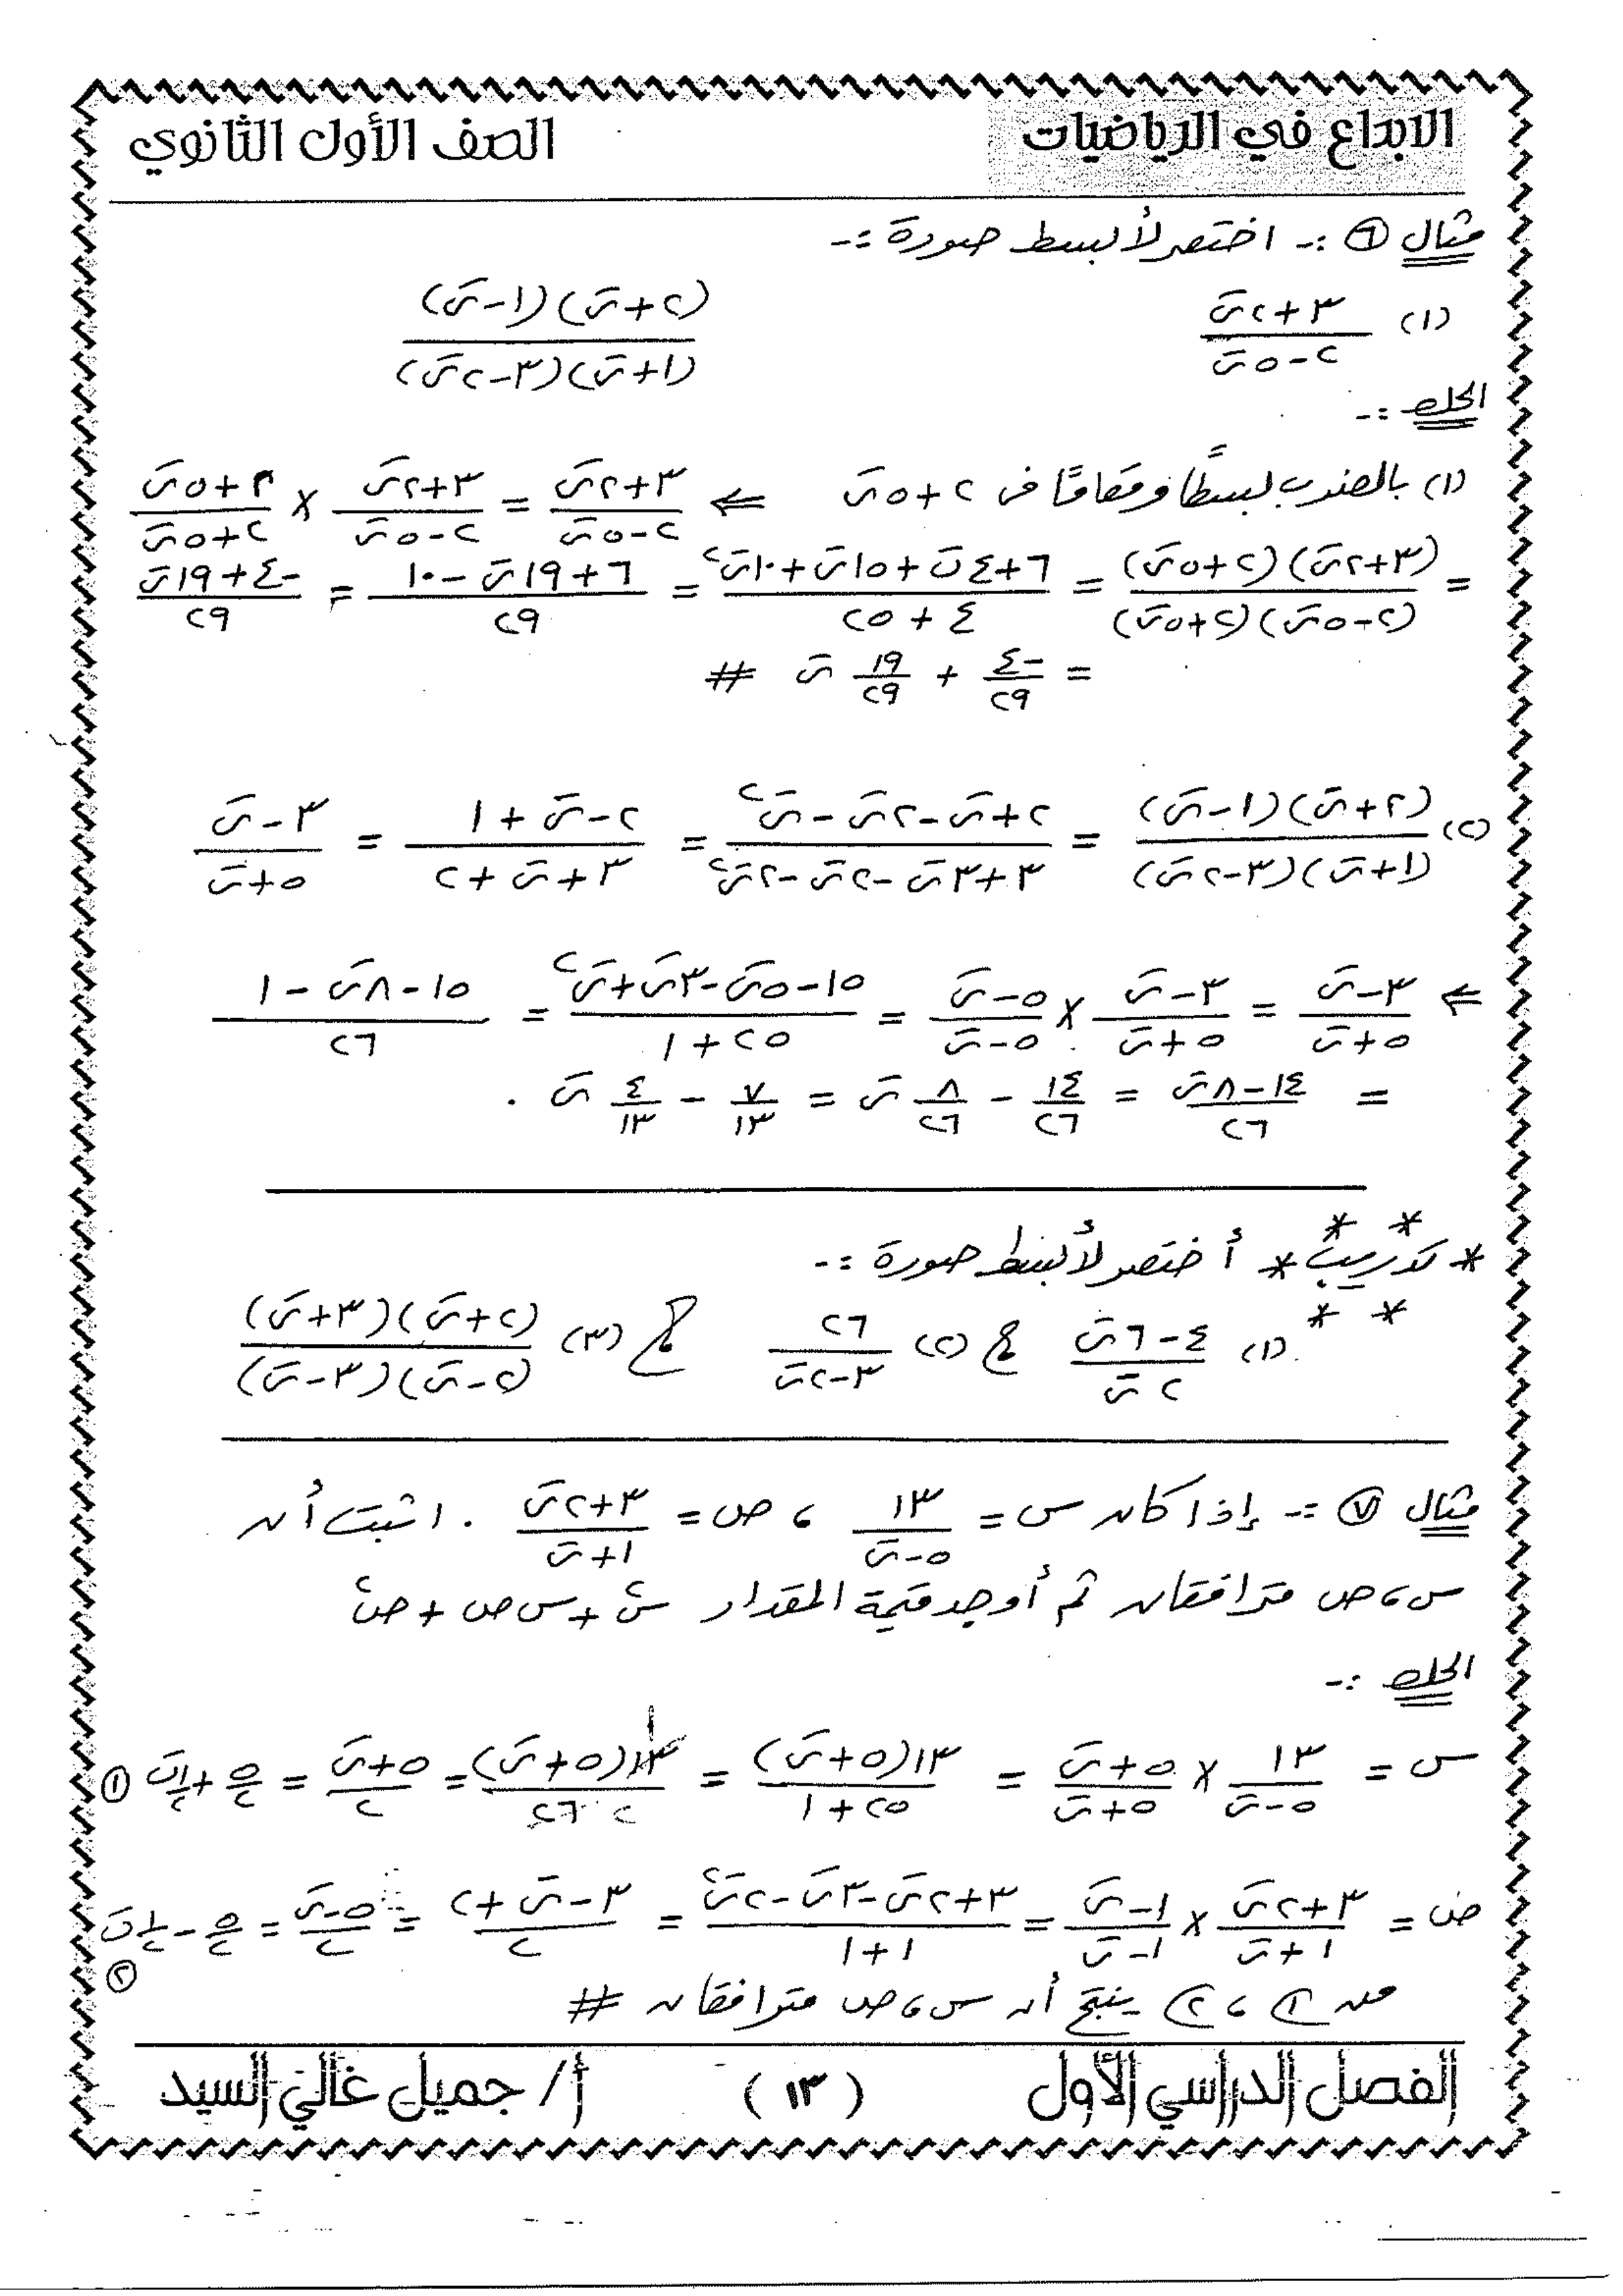 الابداع في الرياضيات الصف الأول الثانوي
مثال ٦ :- اختصر لأبسط صورة :-
(١) (٣+٢ت)/(٢-٥ت) (٢+ت)(١-ت)/(١+ت)(٣-٢ت)
الحل :-
(١) بالضرب بسطًا ومقامًا فى ٢+٥ت ⇐ (٣+٢ت)/(٢-٥ت) = (٣+٢ت)/(٢-٥ت) × (٢+٥ت)/(٢+٥ت)
= (٣+٢ت)(٢+٥ت)/(٢-٥ت)(٢+٥ت) = (٦+٤ت+١٥ت+١٠ت٢)/(٤+٢٥) = (٦+١٩ت-١٠)/٢٩ = (-٤+١٩ت)/٢٩
= -٤/٢٩ + ١٩/٢٩ ت #
(٢) (٢+ت)(١-ت)/(١+ت)(٣-٢ت) = (٢+ت-٢ت-ت٢)/(٣+٣ت-٢ت-٢ت٢) = (٢-ت+١)/(٣+ت+٢) = (٣-ت)/(٥+ت)
⇐ (٣-ت)/(٥+ت) = (٣-ت)/(٥+ت) × (٥-ت)/(٥-ت) = (١٥-٥ت-٣ت+ت٢)/(٢٥+١) = (١٥-٨ت-١)/٢٦
= (١٤-٨ت)/٢٦ = ١٤/٢٦ - ٨/٢٦ ت = ٧/١٣ - ٤/١٣ ت .
* تدريب * أختصر لأبسط صورة :-
(١) (٤-٦ت)/٢ت ، (٢) ٢٦/(٣-٢ت) ، (٣) (٢+ت)(٣+ت)/(٢-ت)(٣-ت)
مثال ٧ :- إذا كان س = ١٣/(٥-ت) ، ص = (٣+٢ت)/(١+ت) . اثبت أن
س ، ص مترافقان ثم أوجد قيمة المقدار س٢ + س ص + ص٢
الحل :-
س = ١٣/(٥-ت) × (٥+ت)/(٥+ت) = ١٣(٥+ت)/(٢٥+١) = ١٣(٥+ت)/٢٦ = (٥+ت)/٢ = ٥/٢ + ١/٢ ت ①
ص = (٣+٢ت)/(١+ت) × (١-ت)/(١-ت) = (٣+٢ت-٣ت-٢ت٢)/(١+١) = (٣-ت+٢)/٢ = (٥-ت)/٢ = ٥/٢ - ١/٢ ت
②
من ① ، ② ينتج أن س ، ص مترافقان #
الفصل الدراسي الأول ( ١٣ ) أ/ جميل غالي السيد